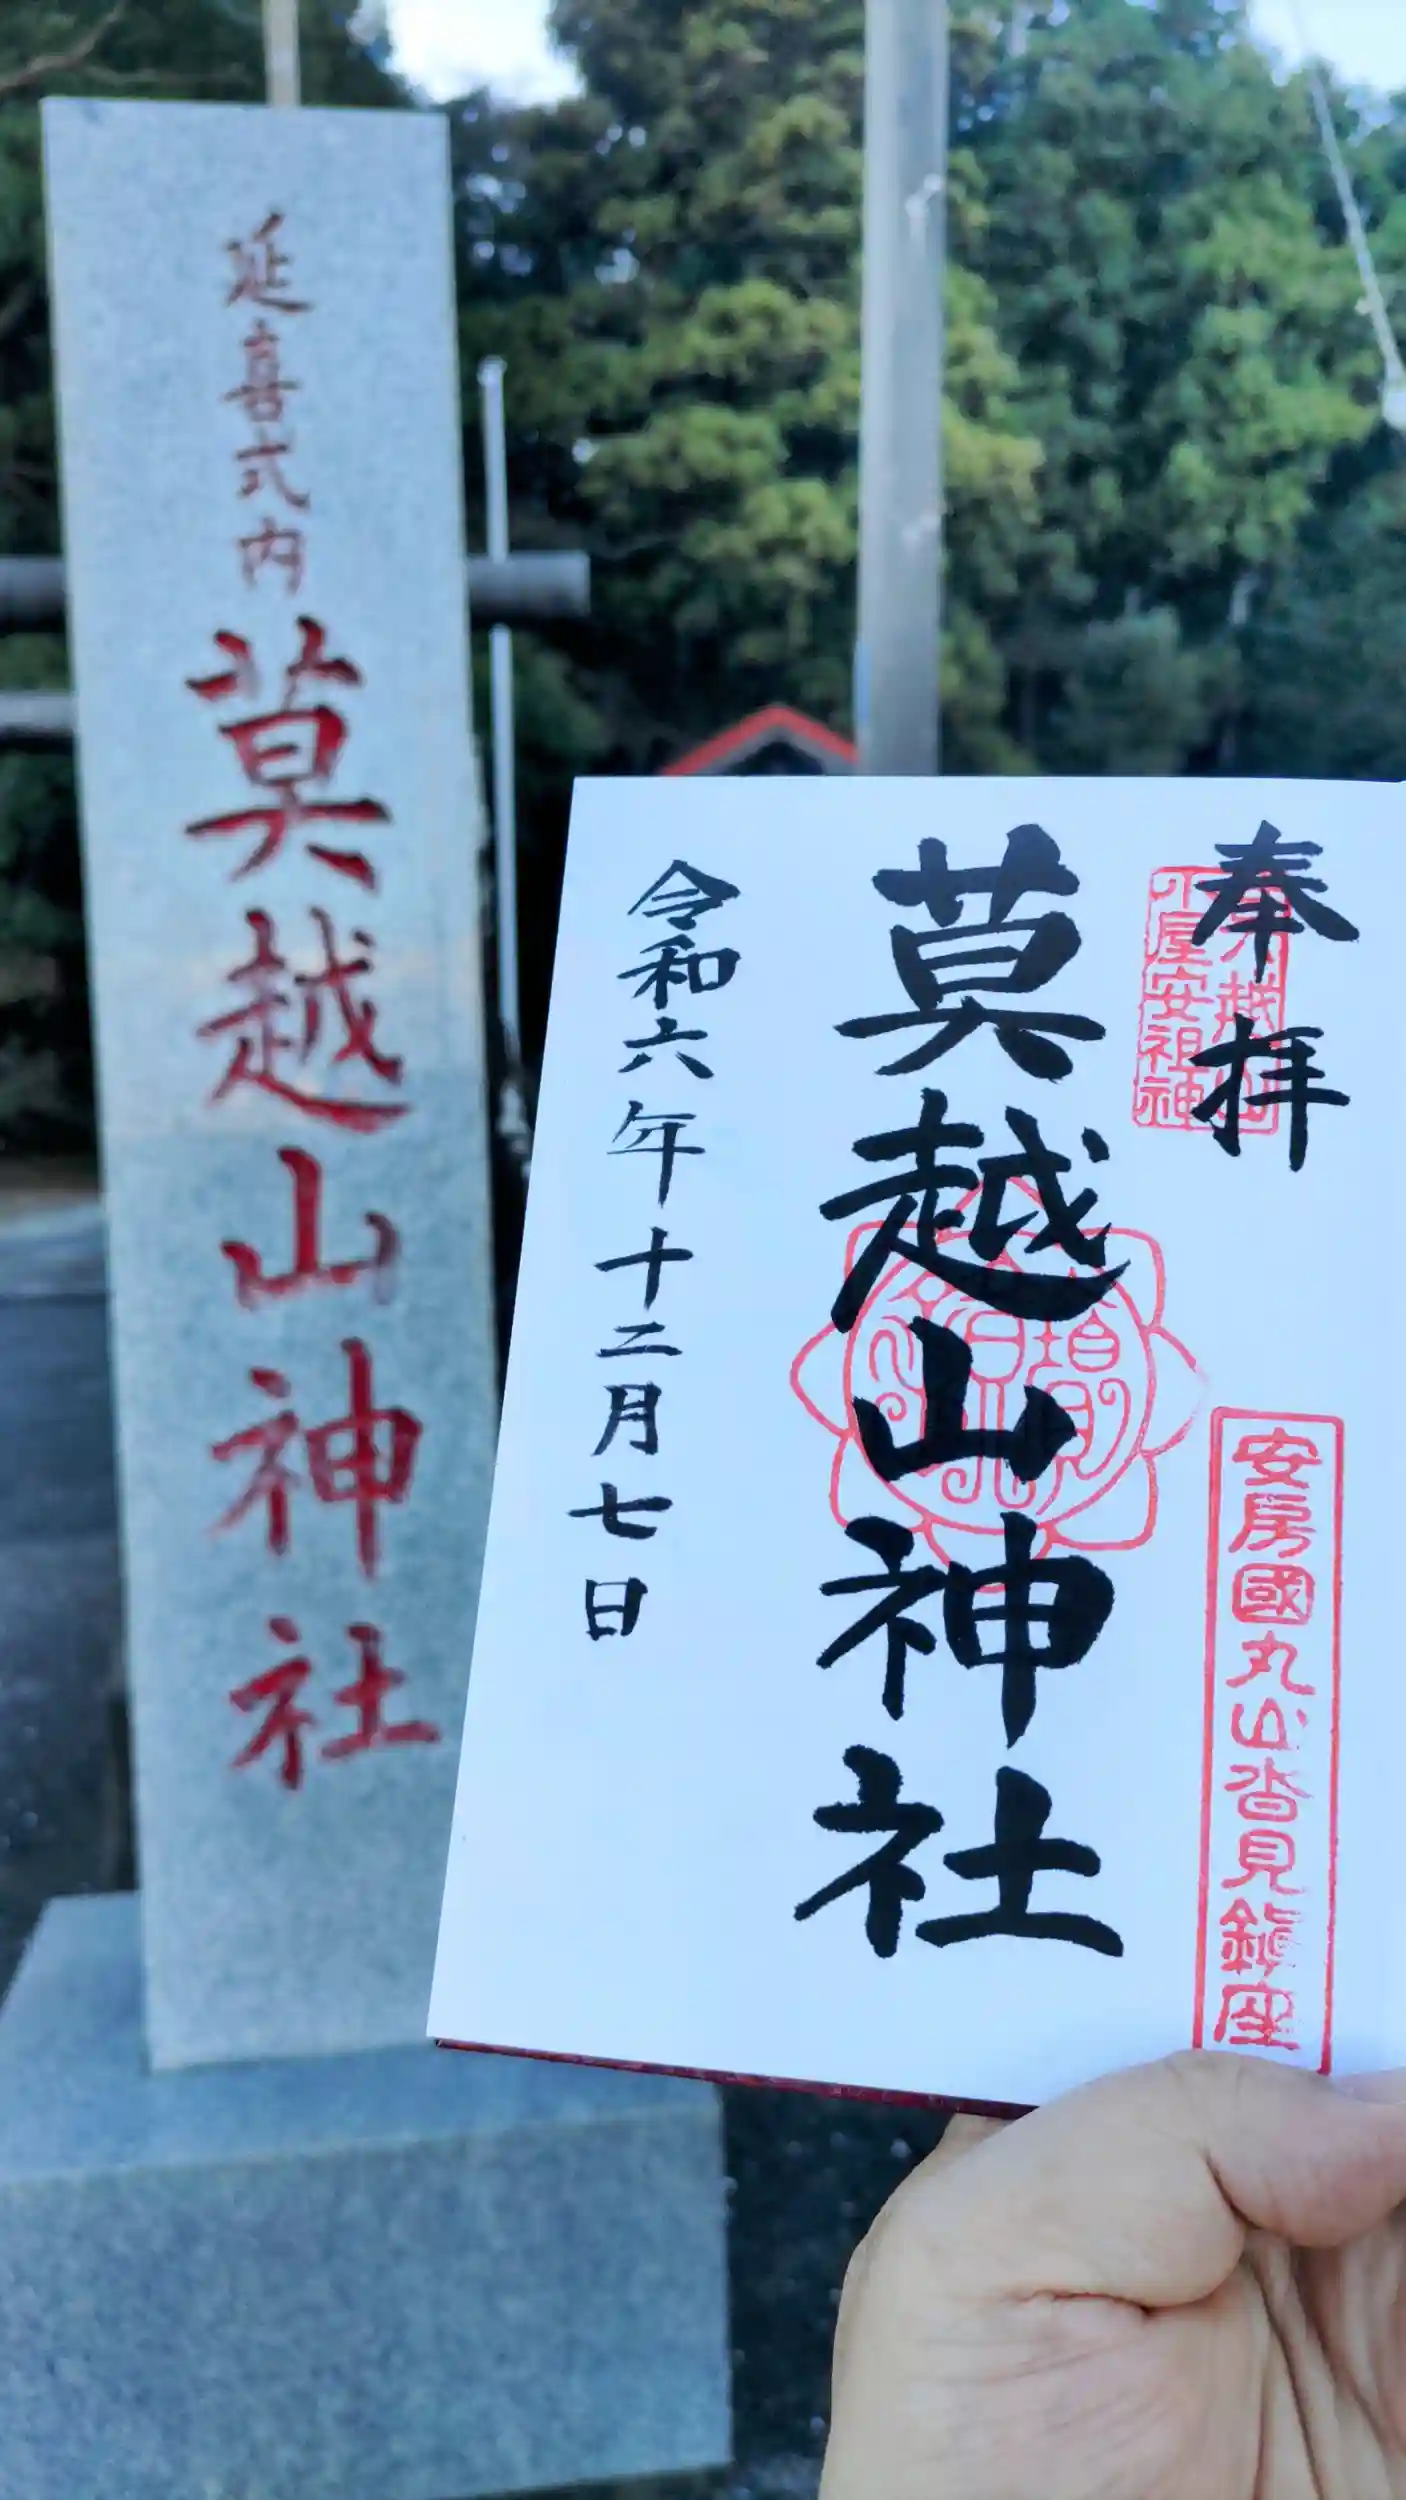 延喜式内
莫越山神社
奉拝
莫越山神社
令和六年十二月七日
安房國丸山沓見鎮座